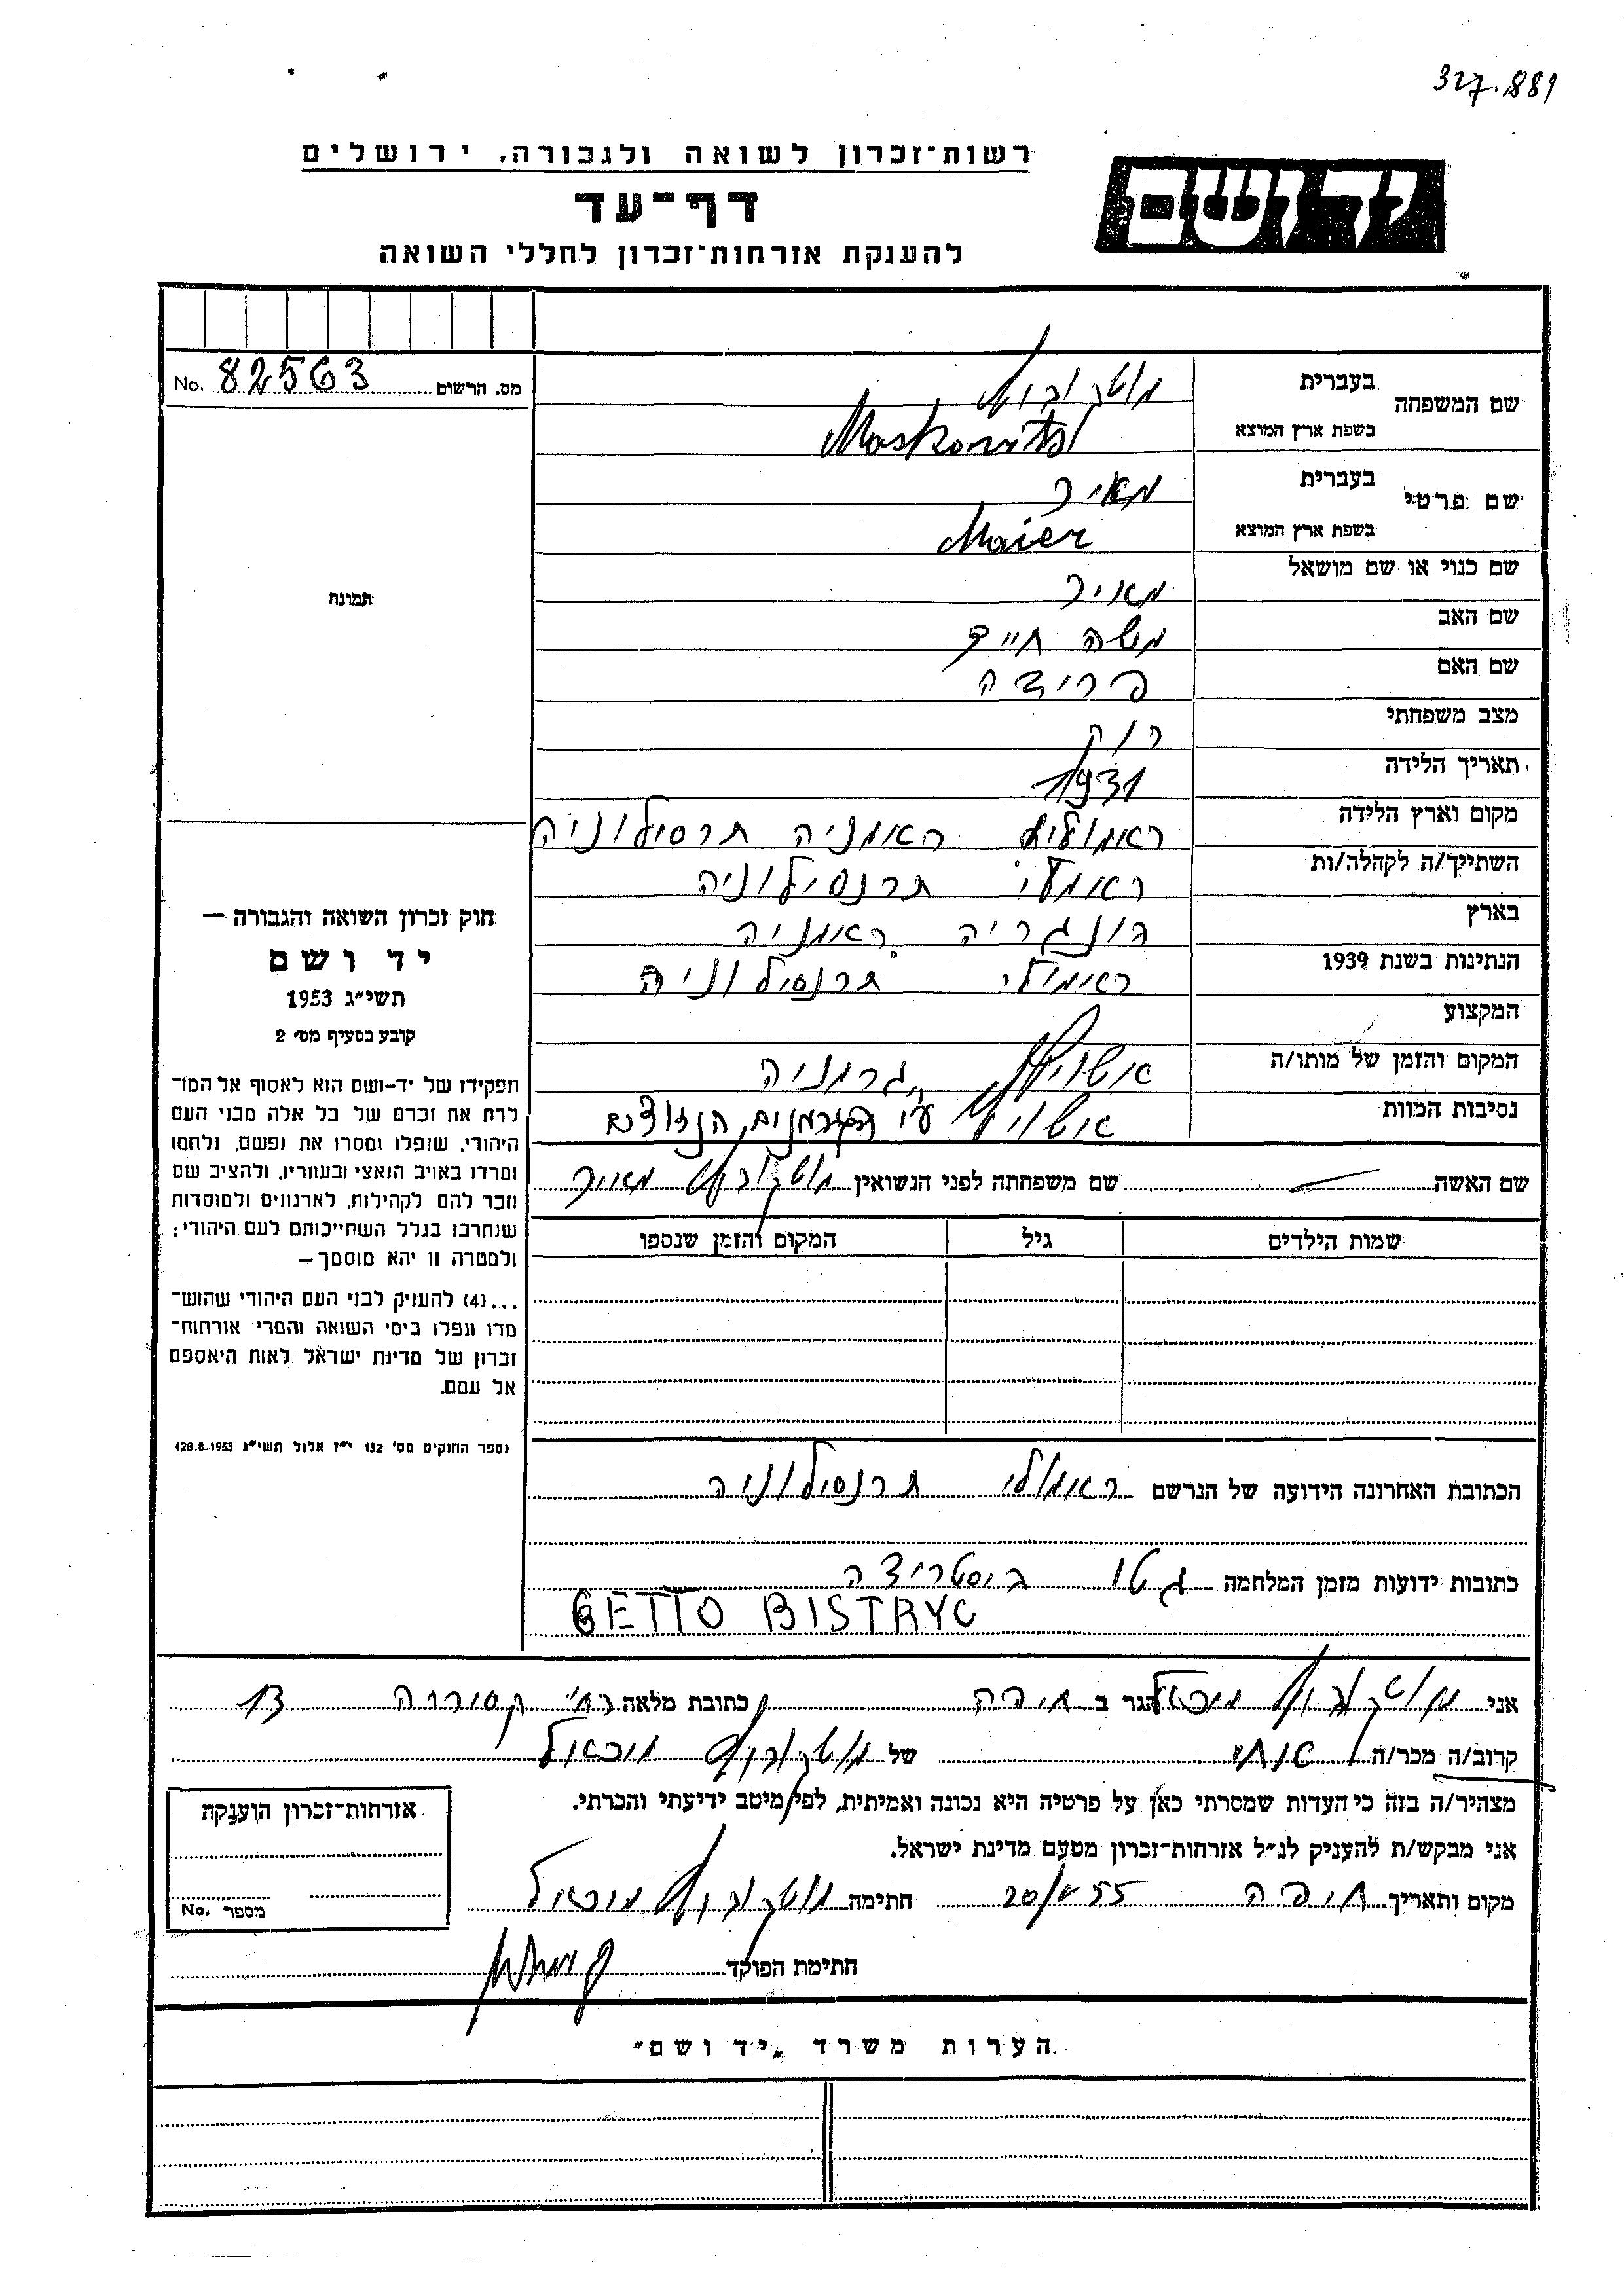 327.889
רשות־זכרון לשואה ולגבורה, ירושלים
יד ושם
דף־עד
להענקת אזרחות־זכרון לחללי השואה
מס. הרשום 82563 No.
שם המשפחה בעברית מושקוביץ
בשפת ארץ המוצא Moskovits
שם פרטי בעברית מאיר
בשפת ארץ המוצא Maier
שם כנוי או שם מושאל מאיר
שם האב משה חיים
שם האם פרידה
מצב משפחתי רוק
תאריך הלידה 1931
מקום וארץ הלידה ראמולית ראמניה תרסילוניה
השתייך/ה לקהלה/ות תרנסילוניה
בארץ הונגריה ראמניה
הנתינות בשנת 1939 ראימולי תרנסילוניה
המקצוע
המקום והזמן של מותו/ה אושוויץ גרמניה
נסיבות המוות אושוויץ ע״י הגרמנים
תמונה
חוק זכרון השואה והגבורה —
יד ושם
תשי״ג 1953
קובע בסעיף מס׳ 2
תפקידו של יד-ושם הוא לאסוף אל המו־
לדת את זכרם של כל אלה מבני העם
היהודי, שנפלו ומסרו את נפשם, נלחמו
ומרדו באויב הנאצי ובעוזריו, ולהציב שם
וזכר להם לקהילות, לארגונים ולמוסדות
שנחרבו בגלל השתייכותם לעם היהודי;
ולמטרה זו יהא מוסמך —
...(4) להעניק לבני העם היהודי שהוש־
מדו ונפלו בימי השואה והמרי אזרחות־
זכרון של מדינת ישראל לאות היאספם
אל עמם.
(ספר החוקים מס׳ 132 י״ז אלול תשי״ג 28.8.1953)
שם האשה — שם משפחתה לפני הנשואין מושקוביץ מאיר
שמות הילדים גיל המקום והזמן שנספו
הכתובת האחרונה הידועה של הנרשם ראמולי תרנסילוניה
כתובות ידועות מזמן המלחמה גטו ביסטריצה
GETTO BISTRYC
אני מושקוביץ מיכאל הגר ב חיפה כתובת מלאה רח׳ 13
קרוב/ה מכר/ה של מושקוביץ מיכאל
מצהיר/ה בזה כי העדות שמסרתי כאן על פרטיה היא נכונה ואמיתית, לפי מיטב ידיעתי והכרתי.
אני מבקש/ת להעניק לנ״ל אזרחות־זכרון מטעם מדינת ישראל.
מקום ותאריך חיפה 55 חתימה מושקוביץ מיכאל
חתימת הפוקד
אזרחות־זכרון הוענקה
מספר No.
הערות משרד „יד ושם״